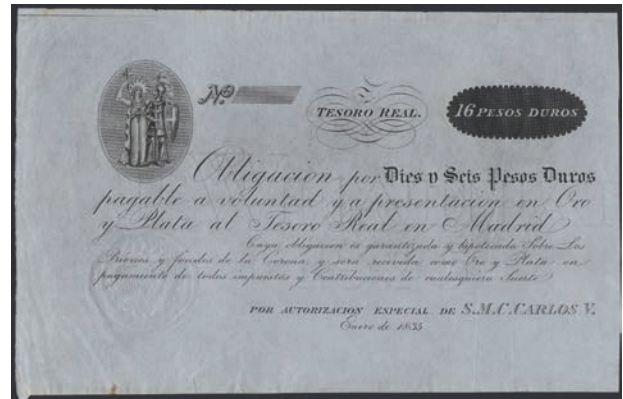 Nº
TESORO REAL.
16 PESOS DUROS
Obligacion por Dies y Seis Pesos Duros
pagable a voluntad y a presentacion en Oro
y Plata al Tesoro Real en Madrid
Cuya obligacion es garantizada y hipotecada Sobre Los
y fondos de la Corona y será recivida como Oro y Plata en
pagamiento de todos impuestos y Contribuciones de cualesquiera Suerte
POR AUTORIZACION ESPECIAL DE S.M.C. CARLOS V.
Enero de 1835